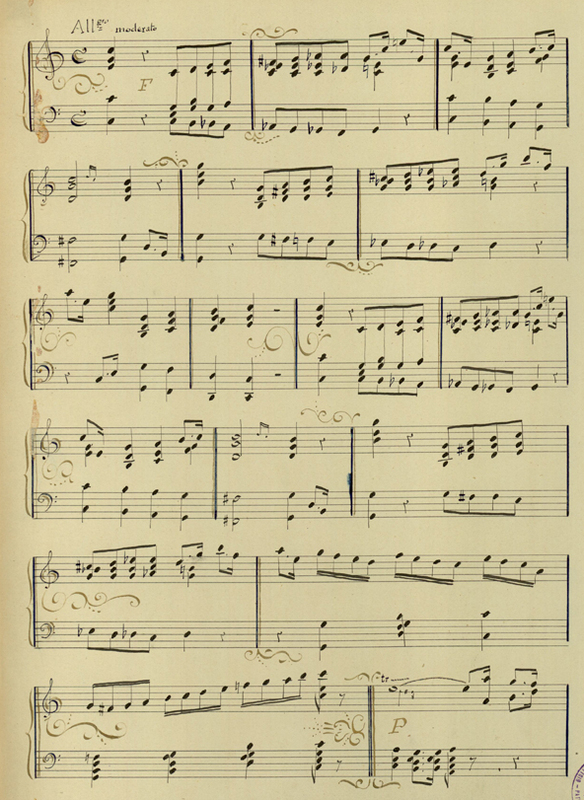 All.gro moderato
F
P